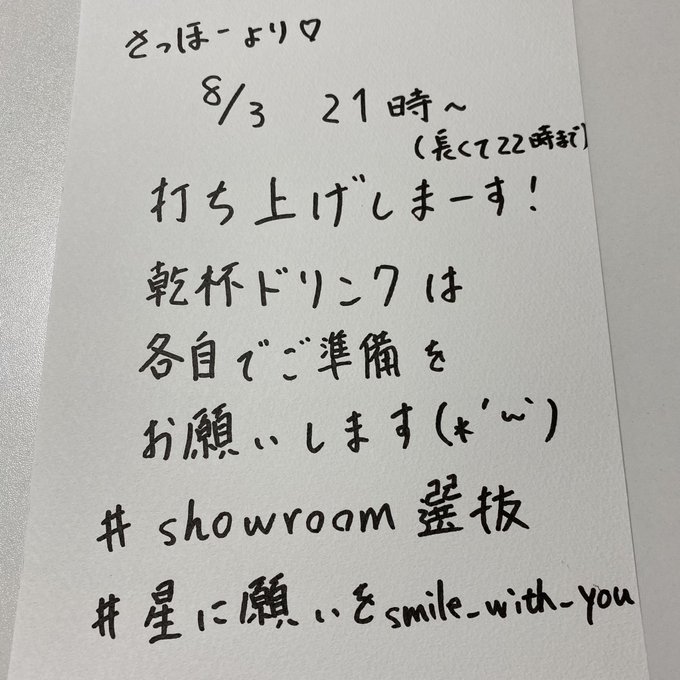 さっほーより♡
8/3 21時~
(長くて22時まで)
打ち上げしまーす!
乾杯ドリンクは
各自でご準備を
お願いします(*´~`)
# showroom選抜
#星に願いをsmile_with_you